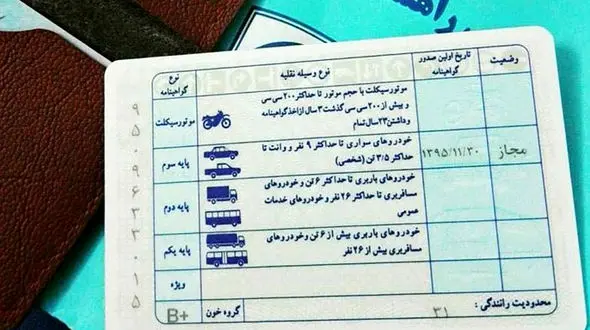 نوع گواهینامه
نوع وسیله نقلیه
تاریخ اولین صدور گواهینامه
وضعیت
موتورسیکلت
موتورسیکلت با حجم موتور تا حداکثر ۲۰۰ سی سی
و بیش از ۲۰۰ سی سی گذشت ۳ سال از اخذ گواهینامه
و داشتن ۲۳ سال تمام
پایه سوم
خودروهای سواری تا حداکثر ۹ نفر و وانت تا
حداکثر ۳/۵ تن (شخصی)
۱۳۹۵/۱۱/۳۰
مجاز
پایه دوم
خودروهای باربری تا حداکثر ۶ تن و خودروهای
مسافربری تا حداکثر ۲۶ نفر و خودروهای خدمات
عمومی
پایه یکم
خودروهای باربری بیش از ۶ تن و خودروهای
مسافربری بیش از ۲۶ نفر
ویژه
محدودیت رانندگی : ۳۱
گروه خون B+